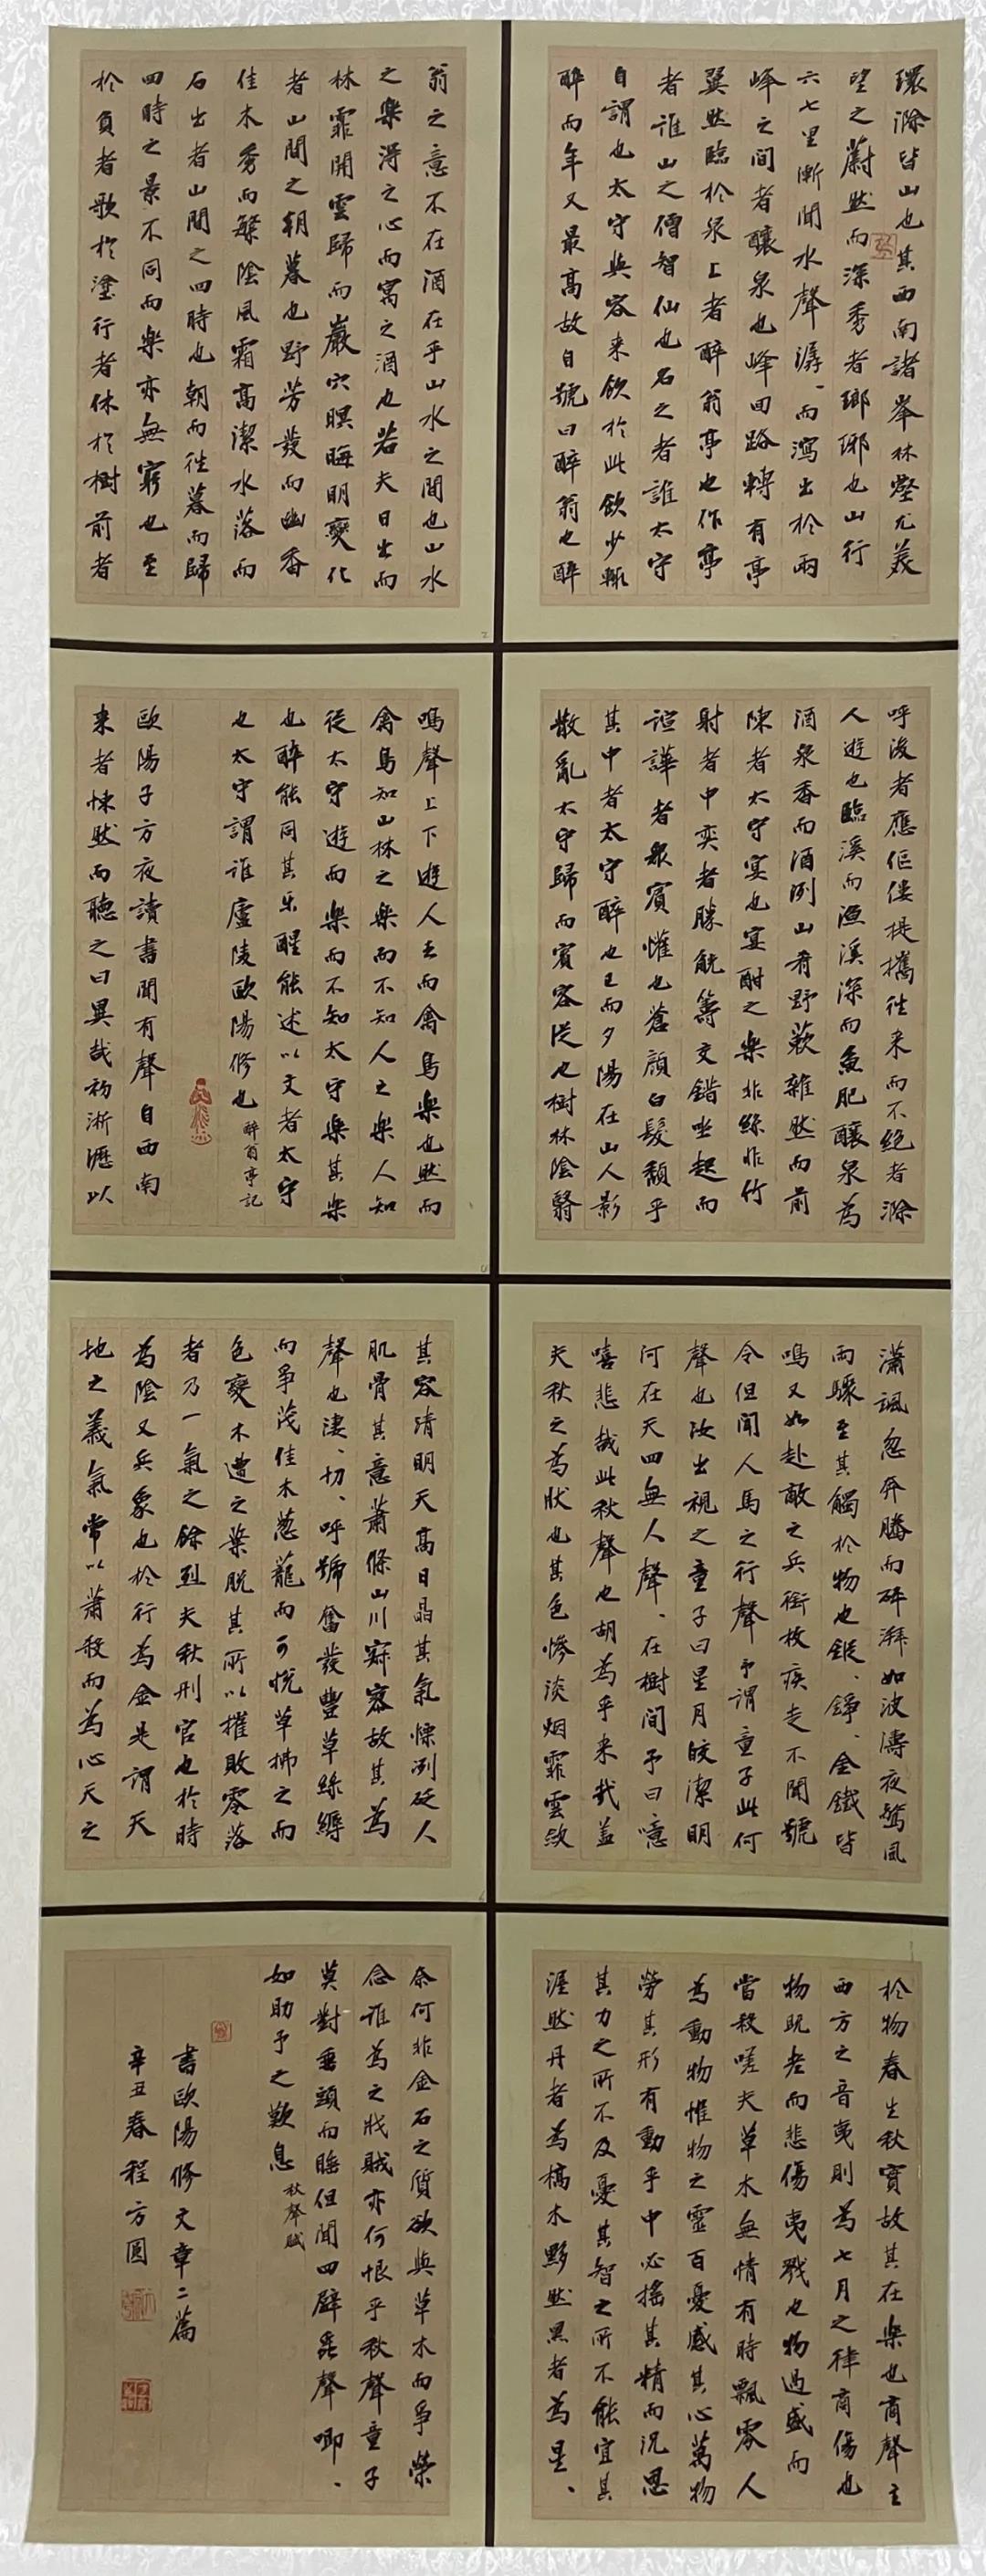 環滁皆山也其西南諸峯林壑尤美
望之蔚然而深秀者瑯琊也山行
六七里漸聞水聲潺、而瀉出於兩
峰之間者釀泉也峰回路轉有亭
翼然臨於泉上者醉翁亭也作亭
者誰山之僧智仙也名之者誰太守
自謂也太守與客来飲於此飲少輒
醉而年又最高故自號曰醉翁也醉
翁之意不在酒在乎山水之間也山水
之樂得之心而寓之酒也若夫日出而
林霏開雲歸而巖穴暝晦明變化
者山間之朝暮也野芳發而幽香
佳木秀而繁陰風霜高潔水落而
石出者山間之四時也朝而往暮而歸
四時之景不同而樂亦無窮也至
於負者歌於塗行者休於樹前者
呼後者應傴僂提攜往来而不絶者滁
人遊也臨溪而漁溪深而魚肥釀泉為
酒泉香而酒冽山肴野蔌雜然而前
陳者太守宴也宴酣之樂非絲非竹
射者中奕者勝觥籌交錯坐起而
諠譁者衆賓懽也蒼顔白髮頹乎
其中者太守醉也已而夕陽在山人影
散亂太守歸而賓客從也樹林陰翳
鳴聲上下遊人去而禽鳥樂也然而
禽鳥知山林之樂而不知人之樂人知
從太守遊而樂而不知太守樂其樂
也醉能同其乐醒能述以文者太守
也太守謂誰廬陵歐陽修也 醉翁亭記
歐陽子方夜讀書聞有聲自西南
来者悚然而聽之曰異哉初淅瀝以
瀟颯忽奔騰而砰湃如波濤夜驚風
雨驟至其觸於物也鏦、錚、金鐵皆
鳴又如赴敵之兵銜枚疾走不聞號
令但聞人馬之行聲予謂童子此何
聲也汝出視之童子曰星月皎潔明
河在天四無人聲、在樹間予曰噫
嘻悲哉此秋聲也胡為乎来哉蓋
夫秋之為狀也其色慘淡烟霏雲斂
其容清明天高日晶其氣慄冽砭人
肌骨其意蕭條山川寂寥故其為
聲也淒、切、呼號奮發豐草綠縟
而爭茂佳木葱蘢而可悅草拂之而
色變木遭之葉脫其所以摧敗零落
者乃一氣之餘烈夫秋刑官也於時
為陰又兵象也於行為金是謂天
地之義氣常以肅殺而為心天之
於物春生秋實故其在樂也商聲主
西方之音夷則為七月之律商傷也
物既老而悲傷夷戮也物過盛而
當殺嗟夫草木無情有時飄零人
為動物惟物之靈百憂感其心萬物
勞其形有動乎中必搖其精而況思
其力之所不及憂其智之所不能宜其
渥然丹者為槁木黟然黑者為星、
奈何非金石之質欲與草木而爭榮
念誰為之戕賊亦何恨乎秋聲童子
莫對垂頭而睡但聞四壁蟲聲唧、
如助予之歎息 秋聲賦
書歐陽修文章二篇
辛丑春程方圆